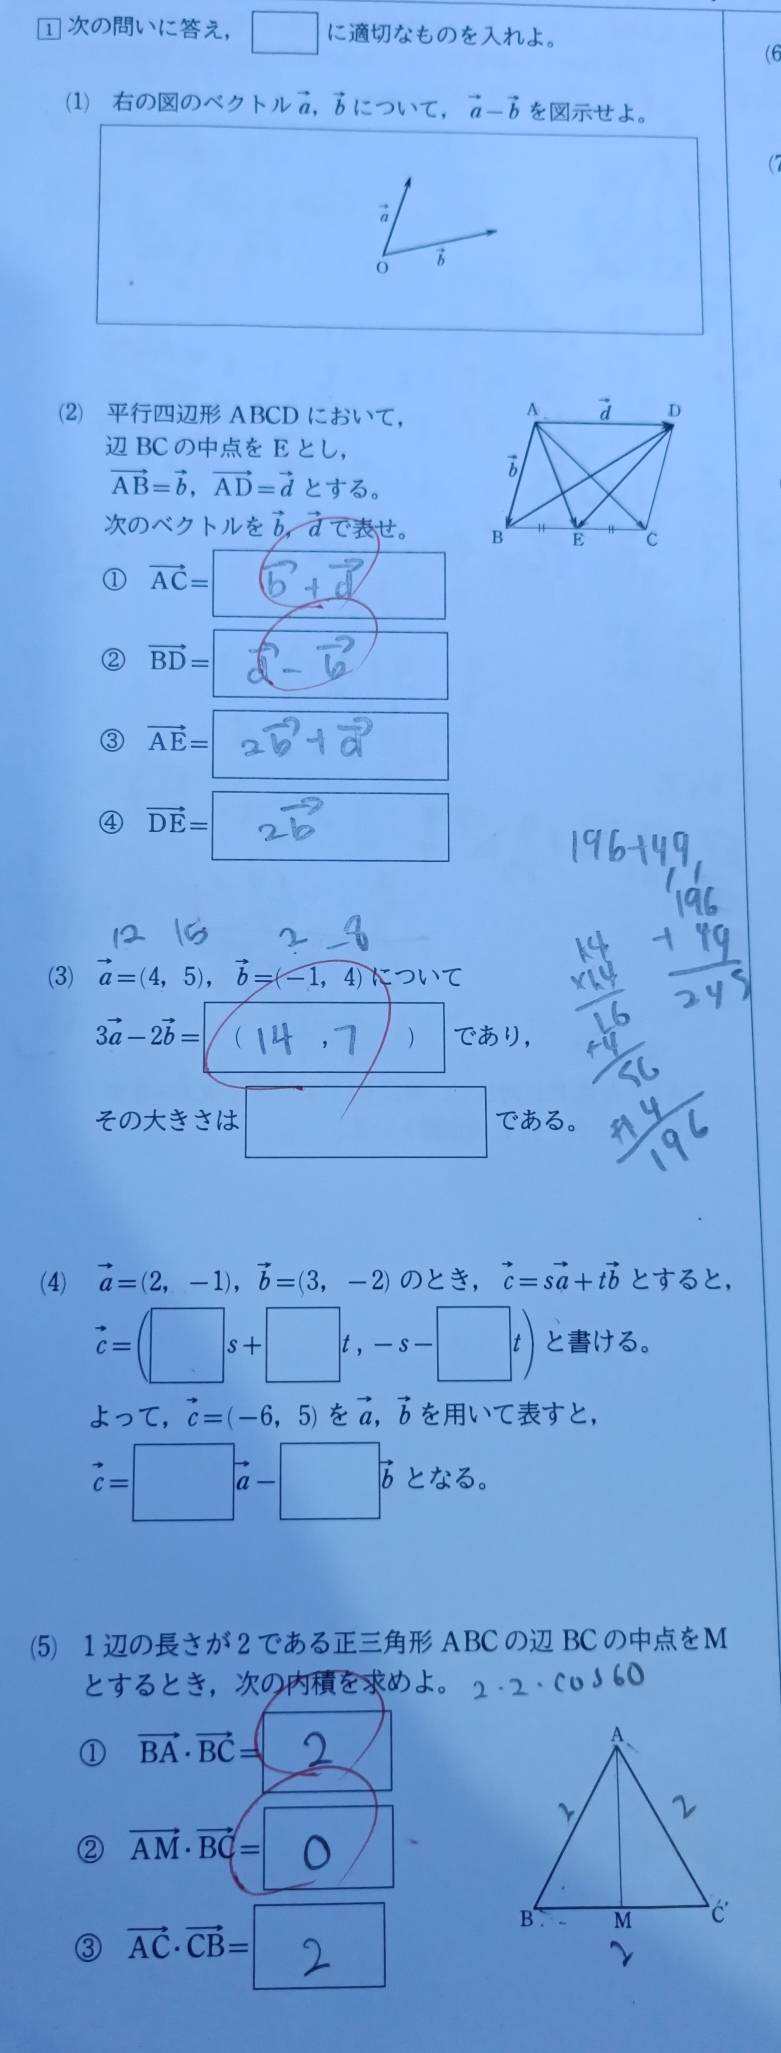 1 次の問いに答え, に適切なものを入れよ。
(6
(1) 右の図のベクトル a→, b→ について, a→ − b→ を図示せよ。
(7
a→
O b→
(2) 平行四辺形 ABCD において,
辺 BC の中点を E とし,
AB→ = b→, AD→ = d→ とする。
次のベクトルを b→, d→ で表せ。
A d→ D
b→
B E C
① AC→ = b→ + d→
② BD→ = d→ − b→
③ AE→ = 2b→ + d→
④ DE→ = 2b→
196+49
196
+ 49
245
14
×14
16
+4
56
+14
196
12 15 2 −8
(3) a→ = (4, 5), b→ = (−1, 4) について
3a→ − 2b→ = ( 14 , 7 ) であり,
その大きさは である。
(4) a→ = (2, −1), b→ = (3, −2) のとき, c→ = sa→ + tb→ とすると,
c→ = ( s + t , − s − t ) と書ける。
よって, c→ = (−6, 5) を a→, b→ を用いて表すと,
c→ = a→ − b→ となる。
(5) 1 辺の長さが 2 である正三角形 ABC の辺 BC の中点を M
とするとき, 次の内積を求めよ。 2・2・cos60
① BA→・BC→ = 2
② AM→・BC→ = 0
③ AC→・CB→ = 2
A
2 2
B M C
2